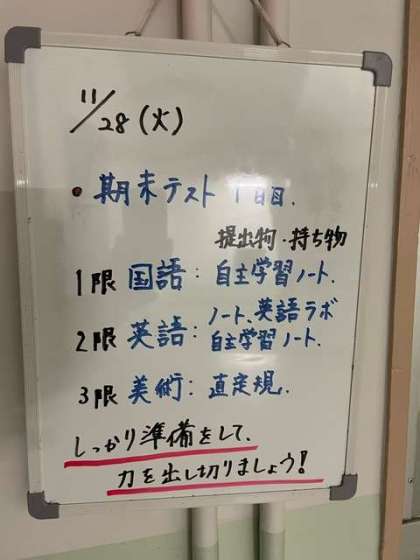 11/28(火)
・期末テスト 1日目.
提出物・持ち物
1限 国語: 自主学習ノート.
2限 英語: ノート、英語ラボ
自主学習ノート.
3限 美術: 直定規.
しっかり準備をして、
力を出し切りましょう!